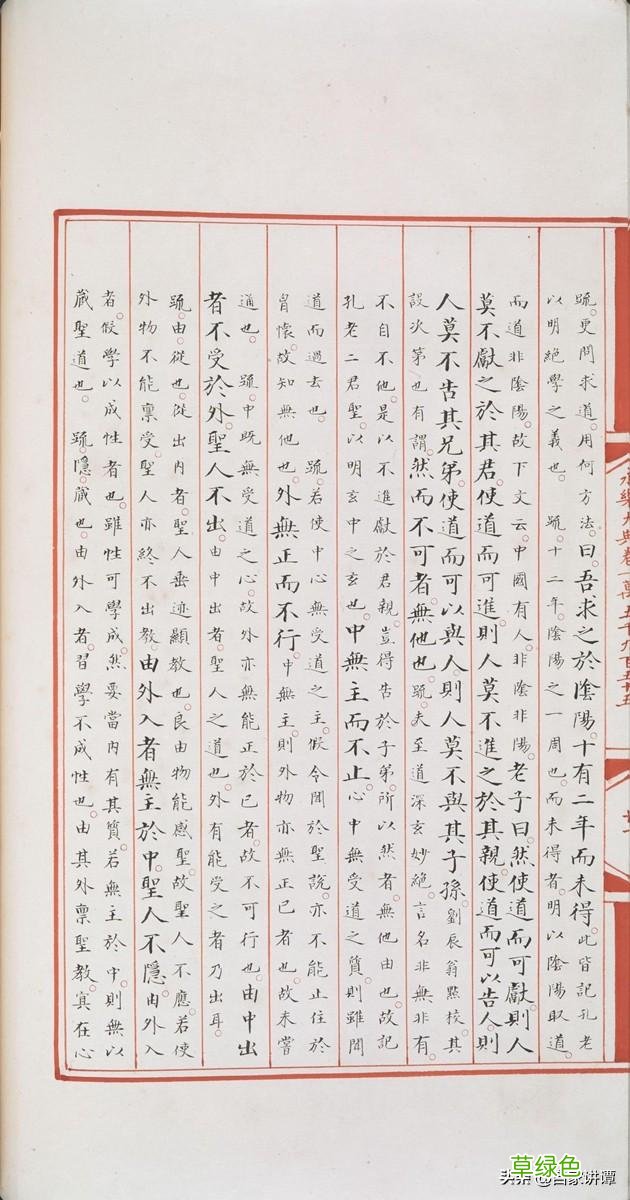 永樂大典卷一萬五千九百五十五
疏。更問求道。用何方法。曰。吾求之於陰陽。十有二年而未得。此皆記孔老
以明絕學之義也。 疏。十二年。陰陽之一周也。而未得者。明以陰陽取道。
而道非陰陽。故下文云。中國有人。非陰非陽。老子曰。然。使道而可獻。則人
莫不獻之於其君。使道而可進。則人莫不進之於其親。使道而可以告人。則
人莫不告其兄弟。使道而可以與人。則人莫不與其子孫。劉辰翁點校。其
設次第也有謂。然而不可者。無他也。疏。夫至道深玄妙絕。言名非無非有。
不自不他。是以不進獻於君親。豈得告於子弟。所以然者。無他由也。故記
孔老二君聖。以明玄中之玄也。中無主而不止。心中無受道之質。則雖聞
道而過去也。 疏。若使中心無受道之主。假令聞於聖說。亦不能止住於
胷懷。故知無他也。外無正而不行。中無主。則外物亦無正已者也。故未嘗
通也。 疏。中既無受道之心。故外亦無能正於已者。故不可行也。由中出
者不受於外。聖人不出。由中出者。聖人之道也。外有能受之者乃出耳。
疏。由。從也。從出內者。聖人垂迹顯教也。良由物能感聖。故聖人不應。若使
外物不能禀受。聖人亦終不出教。由外入者。無主於中。聖人不隱。由外入
者。假學以成性者也。雖性可學成。然要當內有其質。若無主於中。則無以
藏聖道也。 疏。隱。藏也。由外入者。習學不成性也。由其外禀聖教。在心
头条@百家讲谭
草绿色